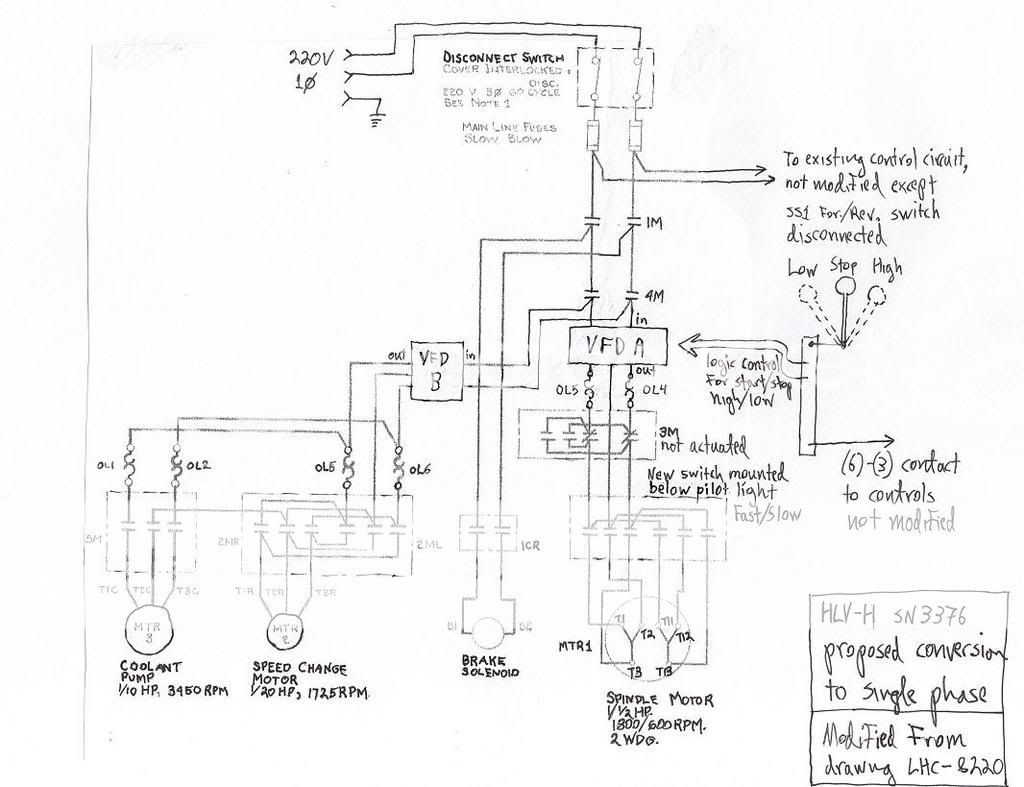 220V
1Ø
DISCONNECT SWITCH
COVER INTERLOCKED
DISC.
220 V 3Ø 60 CYCLE
SEE NOTE 1
MAIN LINE FUSES
SLOW BLOW
To existing control circuit,
not modified except
SS1 For./Rev. switch
disconnected
1M
Low Stop High
4M
in
VFD A
out
logic control
for start/stop
high/low
out
VFD
B
in
OL5
OL4
3M
not actuated
(6)-(3) contact
to controls
not modified
OL1
OL2
OL5
OL6
New switch mounted
below pilot light
Fast/Slow
5M
2MR
2ML
1CR
T1C
T2C
T3C
T1R
T2R
T3R
MTR
3
MTR
2
B1
B2
MTR1
T1
T2
T3
T11
T12
T13
COOLANT
PUMP
1/10 HP, 3450 RPM
SPEED CHANGE
MOTOR
1/20 HP, 1725 RPM.
BRAKE
SOLENOID
SPINDLE MOTOR
1 1/2 HP.
1800/600 RPM.
2 WDG.
HLV-H SN3376
proposed conversion
to single phase
Modified From
drawing LHC-8220